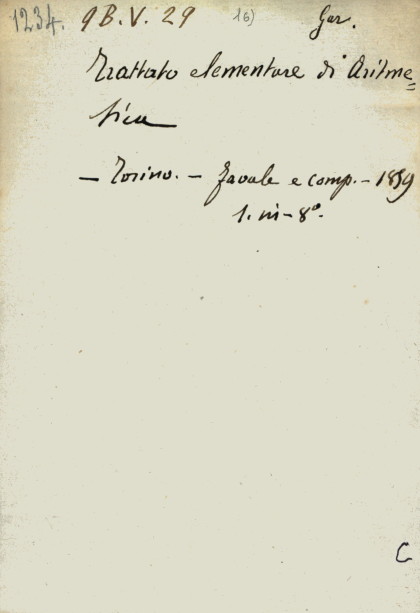 1234. 9 B. V. 29 16) Gar.
Trattato elementare di Aritme=
tica
— Torino. — Favale e comp. — 1859
1. in-8°.
C